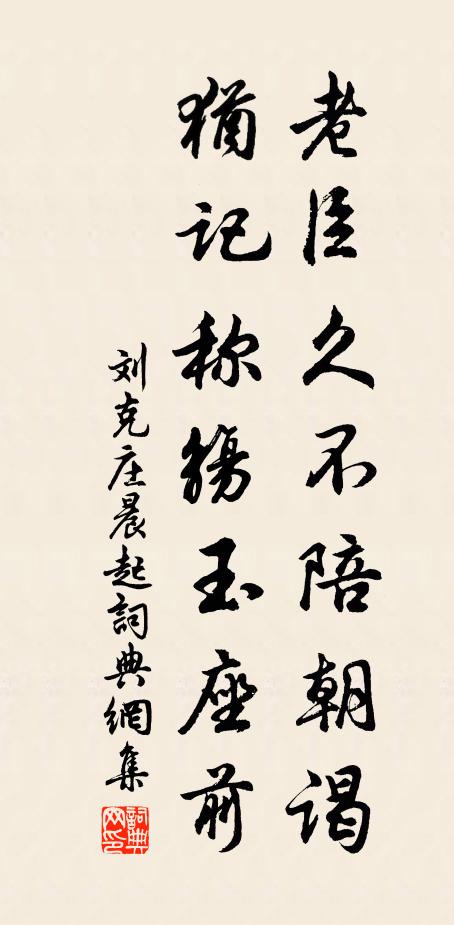 老臣久不陪朝谒
犹记称觞玉座前
刘克庄晨起詞典網集
詞典网印